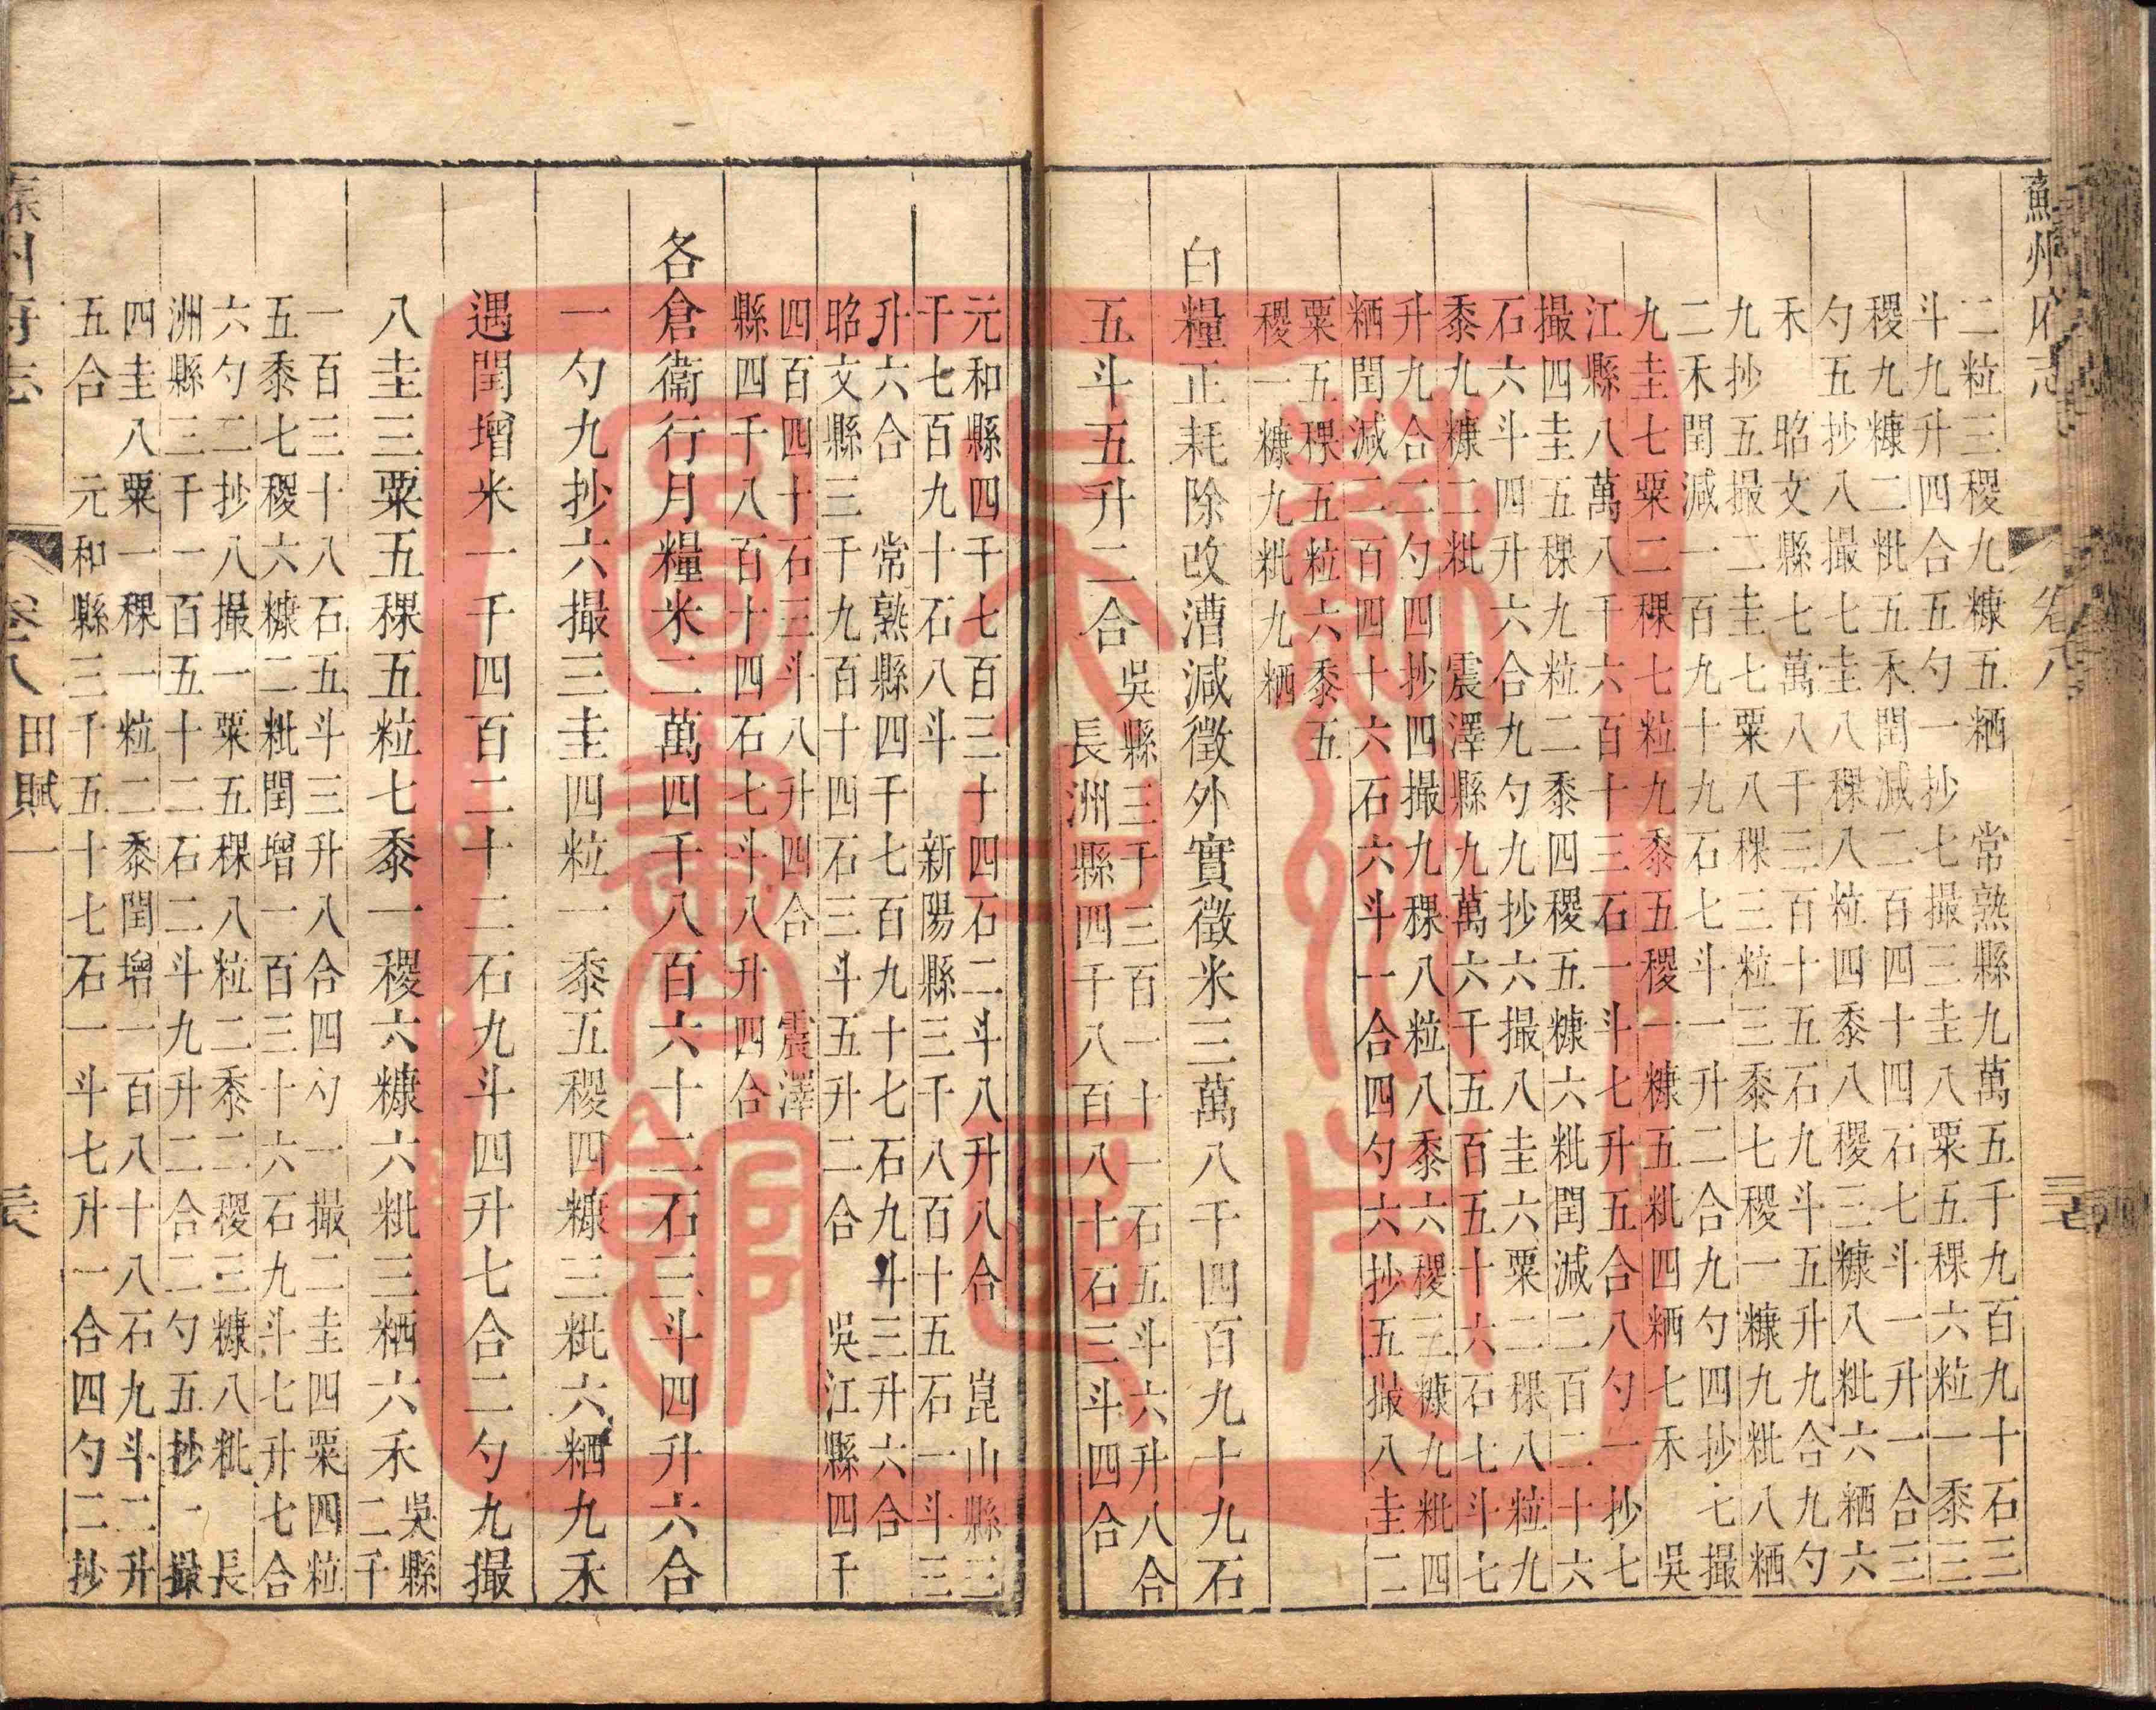 蘇州府志 卷八
二粒三稷九糠五粞 常熟縣九萬五千九百九十石三
斗九升四合五勺一抄七撮三圭八粟五稞六粒一黍三
稷九糠二粃五禾閏減二百四十四石七斗一升一合三
勺五抄八撮七圭八稞八粒四黍八稷三糠八粃六粞六
禾 昭文縣七萬八千三百十五石九斗五升九合九勺
九抄五撮二圭七粟八稞三粒三黍七稷一糠九粃八粞
二禾閏減一百九十九石七斗一升二合九勺四抄七撮
九圭七粟二稞七粒九黍五稷一糠五粃四粞七禾 吳
江縣八萬八千六百十三石一斗七升五合八勺一抄七
撮四圭五稞九粒二黍四稷五糠六粃閏減二百二十六
石六斗四升六合九勺九抄六撮八圭六粟二稞八粒九
黍九糠二粃 震澤縣九萬六千五百五十六石七斗七
升九合二勺四抄四撮九稞八粒八黍六稷三糠九粃四
粞閏減二百四十六石六斗一合四勺六抄五撮八圭二
粟五稞五粒六黍五
稷一糠九粃九粞
白糧正耗除改漕減徵外實徵米三萬八千四百九十九石
五斗五升二合
吳縣三千三百一十一石五斗六升八合
長洲縣四千八百八十石三斗四合
元和縣四千七百三十四石二斗八升八合 崑山縣三
千七百九十石八斗 新陽縣三千八百十五石一斗三
升六合 常熟縣四千七百九十七石九斗三升六合
昭文縣三千九百十四石三斗五升二合 吳江縣四千
四百四十石三斗八升四合 震澤
縣四千八百十四石七斗八升四合
各倉衞行月糧米二萬四千八百六十二石三斗四升六合
一勺九抄六撮三圭四粒一黍五稷四糠三粃六粞九禾
遇閏增米一千四百二十二石九斗四升七合二勺九撮
八圭三粟五稞五粒七黍一稷六糠六粃三粞六禾
吳縣
二千
一百三十八石五斗三升八合四勺一撮二圭四粟四粒
五黍七稷六糠二粃閏增一百三十六石九斗七升七合
六勺二抄八撮一粟五稞八粒二黍二稷三糠八粃 長
洲縣三千一百五十二石二斗九升二合二勺五抄一撮
四圭八粟一稞一粒二黍閏增一百八十八石九斗二升
五合 元和縣三千五十七石一斗七升一合四勺二抄
蘇州府志 卷八 田賦一